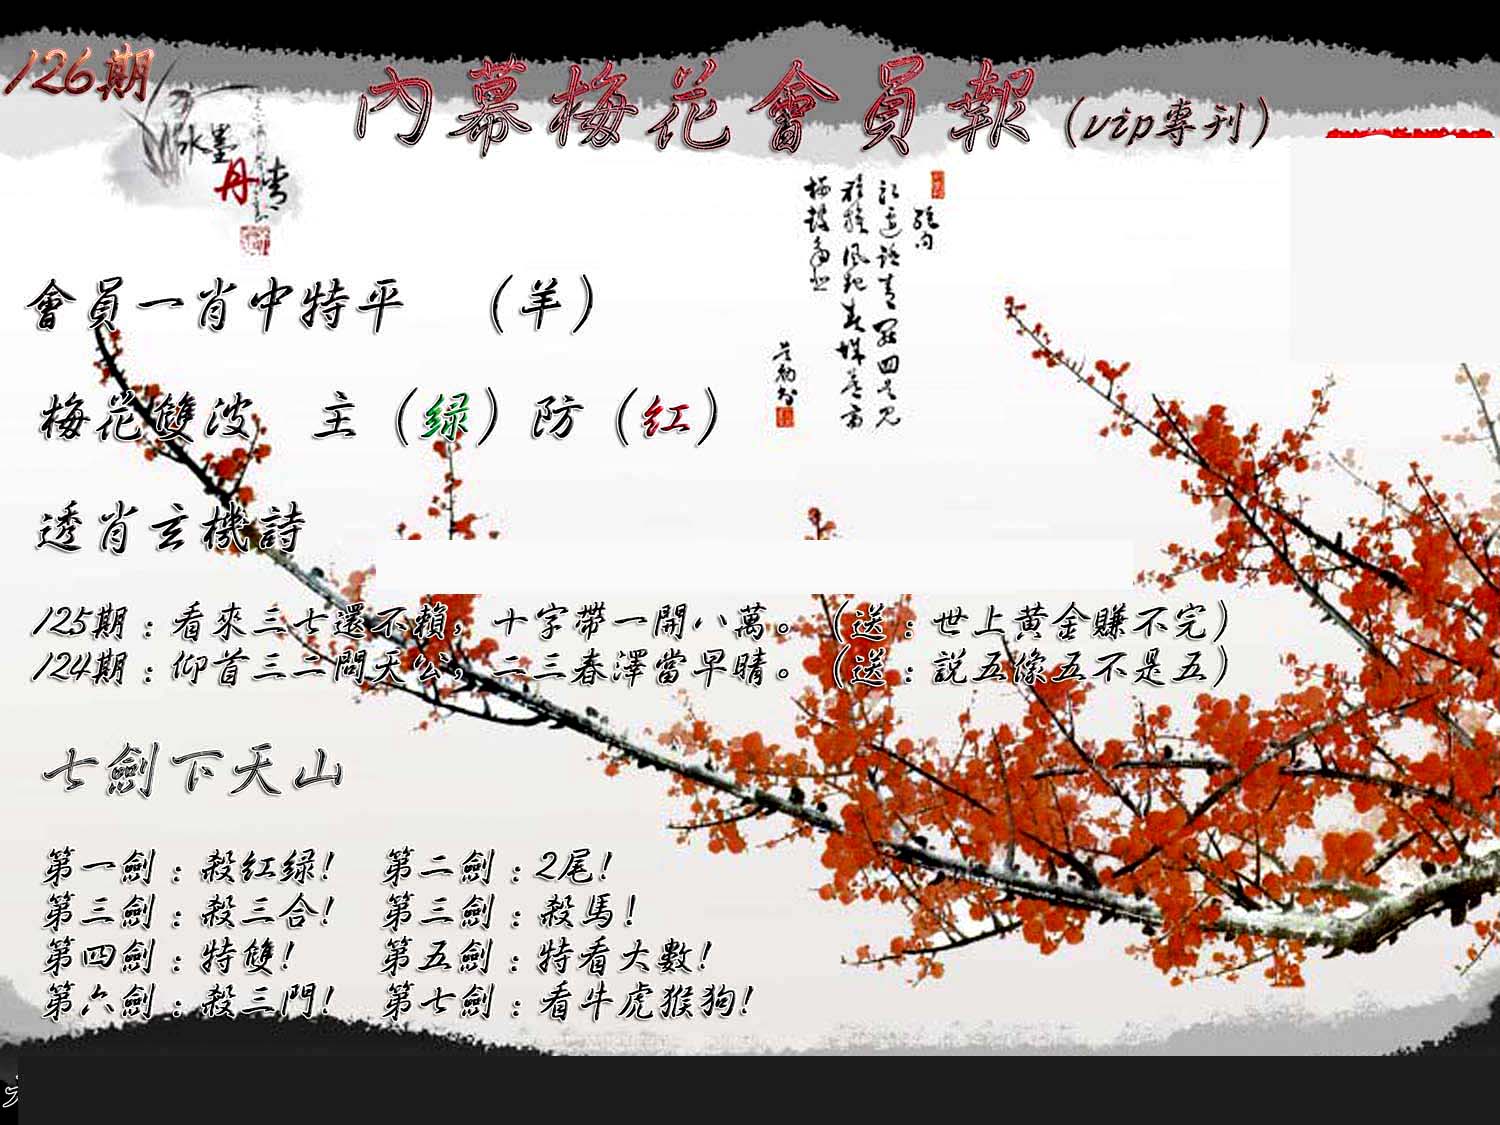 126期
內幕梅花會員報（vip專刊）
水墨
丹青
會員一肖中特平　（羊）
梅花雙波　主（绿）防（红）
透肖玄機詩
125期：看來三七還不賴，十字帶一開八萬。（送：世上黄金賺不完）
124期：仰首三二問天公，二三春澤當早晴。（送：説五像五不是五）
七劍下天山
第一劍：殺红绿！　第二劍：2尾！
第三劍：殺三合！　第三劍：殺馬！
第四劍：特雙！　第五劍：特看大數！
第六劍：殺三門！　第七劍：看牛虎猴狗！